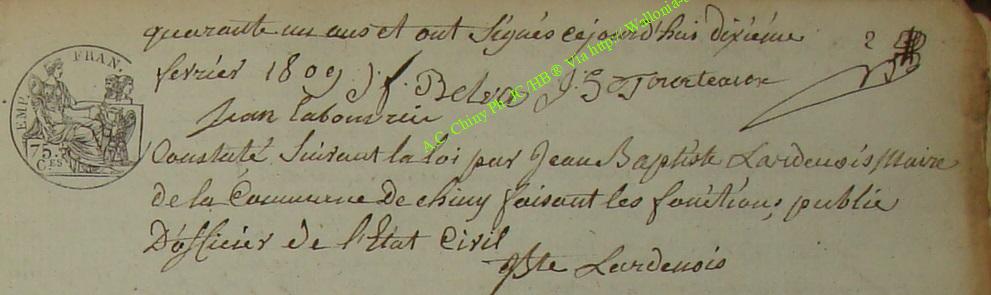 quarante un ans et ont signés cejourd'hui dixiéme
fevrier 1809 J. f. J. B
Jean
Constaté suivant la loi par Jean Baptiste Lardenois Maire
de la Commune De chiny faisant les fonctions publie
D'officier de l'Etat Civil
JBte Lardenois
EMP. FRAN.
75
CES
A.C. Chiny Ph JC/HB ® Via http://Wallonia-